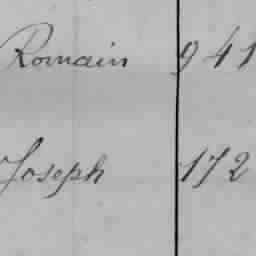 Romain 941
Joseph 172